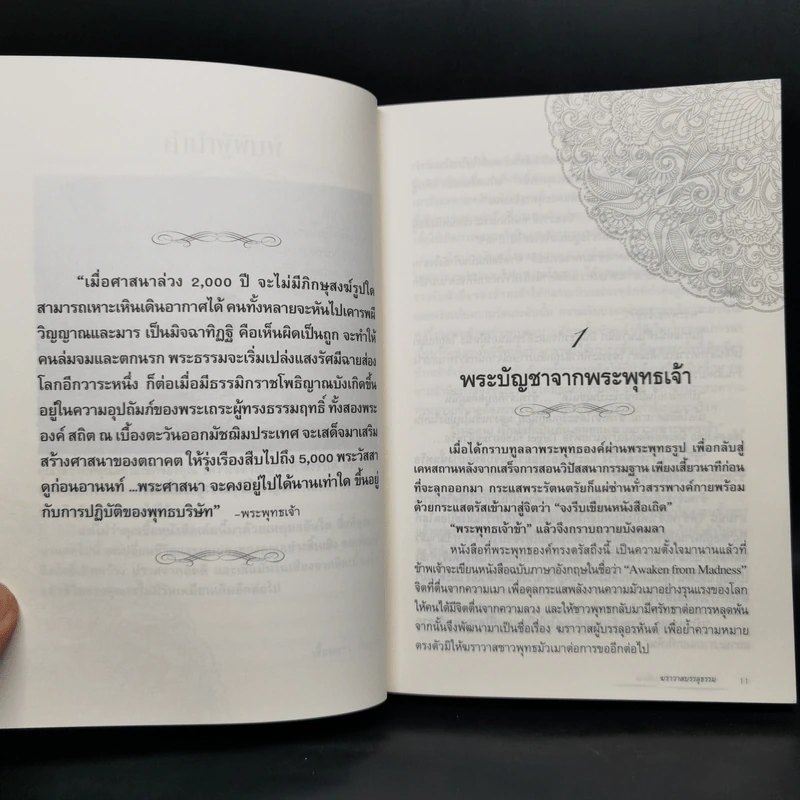 “เมื่อศาสนาล่วง 2,000 ปี จะไม่มีภิกษุสงฆ์รูปใด
สามารถเหาะเหินเดินอากาศได้ คนทั้งหลายจะหันไปเคารพผี
วิญญาณและมาร เป็นมิจฉาทิฏฐิ คือเห็นผิดเป็นถูก จะทำให้
คนล่มจมและตกนรก พระธรรมจะเริ่มเปล่งแสงรัศมีฉายส่อง
โลกอีกวาระหนึ่ง ก็ต่อเมื่อมีธรรมิกราชโพธิญาณบังเกิดขึ้น
อยู่ในความอุปถัมภ์ของพระเถระผู้ทรงธรรมฤทธิ์ ทั้งสองพระ
องค์ สถิต ณ เบื้องตะวันออกมัชฌิมประเทศ จะเสด็จมาเสริม
สร้างศาสนาของตถาคต ให้รุ่งเรืองสืบไปถึง 5,000 พระวัสสา
ดูก่อนอานนท์ ...พระศาสนา จะคงอยู่ไปได้นานเท่าใด ขึ้นอยู่
กับการปฏิบัติของพุทธบริษัท” –พระพุทธเจ้า
1
พระบัญชาจากพระพุทธเจ้า
เมื่อได้กราบทูลลาพระพุทธองค์ผ่านพระพุทธรูป เพื่อกลับสู่
เคหสถานหลังจากเสร็จการสอนวิปัสสนากรรมฐาน เพียงเสี้ยวนาทีก่อน
ที่จะลุกออกมา กระแสพระรัตนตรัยก็แผ่ซ่านทั่วสรรพางค์กายพร้อม
ด้วยกระแสตรัสเข้ามาสู่จิตว่า “จงรีบเขียนหนังสือเถิด”
“พระพุทธเจ้าข้า” แล้วจึงกราบถวายบังคมลา
หนังสือที่พระพุทธองค์ทรงตรัสถึงนี้ เป็นความตั้งใจมานานแล้วที่
ข้าพเจ้าจะเขียนหนังสือฉบับภาษาอังกฤษในชื่อว่า “Awaken from Madness”
จิตที่ตื่นจากความเมา เพื่อดูลกระแสพลังงานความมัวเมาอย่างรุนแรงของโลก
ให้คนได้มีจิตตื่นจากความลวง และให้ชาวพุทธกลับมามีศรัทธาต่อการหลุดพ้น
จากนั้นจึงพัฒนามาเป็นชื่อเรื่อง ฆราวาสผู้บรรลุอรหันต์ เพื่อย้ำความหมาย
ตรงตัวมิให้ฆราวาสชาวพุทธมัวเมาต่อการขออีกต่อไป
ฆราวาสบรรลุธรรม 11